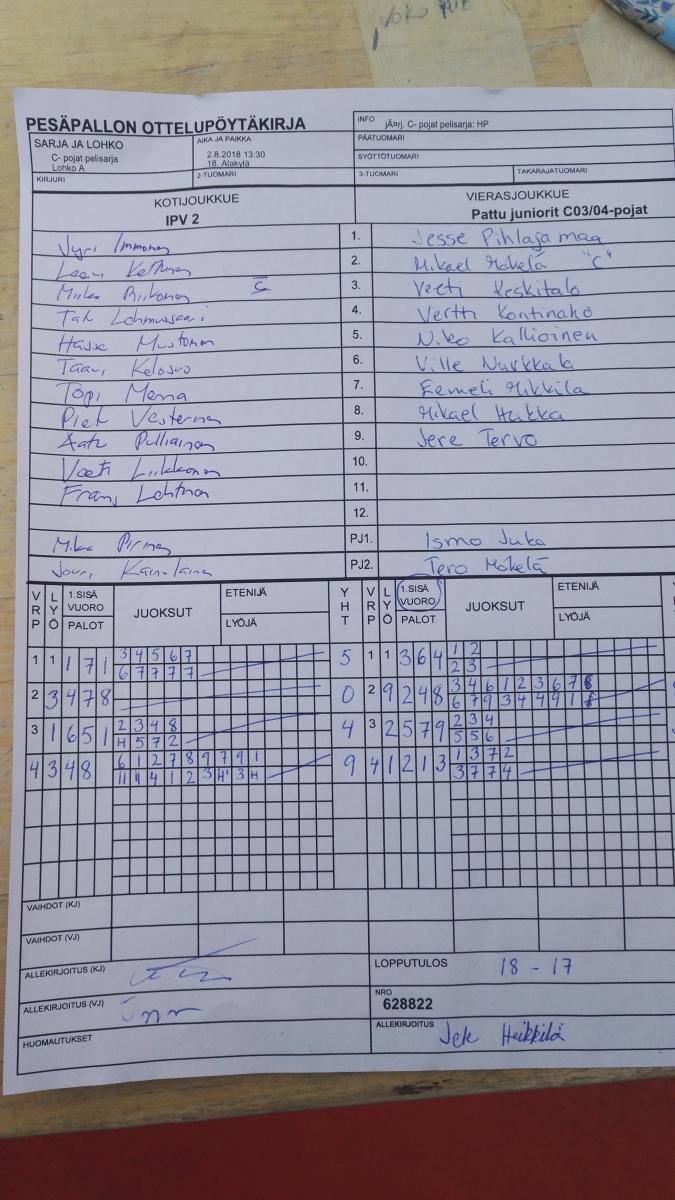 PESÄPALLON OTTELUPÖYTÄKIRJA
INFO jÃ¤rj. C- pojat pelisarja: HP
SARJA JA LOHKO
C- pojat pelisarja
Lohko A
AIKA JA PAIKKA
2.8.2018 13:30
18. Alakylä
PÄÄTUOMARI
SYÖTTÖTUOMARI
KIRJURI 2-TUOMARI 3-TUOMARI TAKARAJATUOMARI
KOTIJOUKKUE VIERASJOUKKUE
IPV 2 Pattu juniorit C03/04-pojat
Jyri Immonen 1. Jesse Pihlajamaa
2. Mikael Mäkelä "C"
Miika Riikonen C 3. Veeti Keskitalo
4. Vertti Kontinaho
Hasse Mustonen 5. Niko Kallioinen
6. Ville Nurkkala
Topi 7. Eemeli Mikkilä
8. Mikael Hukka
Aatu Pulliainen 9. Jere Tervo
Veeti Liikkanen 10.
Frans Lehtinen 11.
12.
Mika Pirinen PJ1. Ismo Juka
PJ2. Tero Mäkelä
VRP LYÖ 1.SISÄ VUORO PALOT JUOKSUT ETENIJÄ LYÖJÄ YHT VRP LYÖ 1.SISÄ VUORO PALOT JUOKSUT ETENIJÄ LYÖJÄ
1 1 1 7 1 3 4 5 6 7 5 1 1 3 6 4 1 2
6 7 7 7 7 2 3
2 3 4 7 8 0 2 9 2 4 8 3 4 6 1 2 3 6 7 8
6 7 9 3 4 4 9 1
3 1 6 5 1 2 3 4 8 4 3 2 5 7 9 2 3 4
4 5 7 2 5 5 6
4 3 4 8 6 1 2 7 8 9 7 9 1 9 4 1 2 1 3 1 3 7 2
11 11 4 1 2 3 H 3 H 3 7 7 4
VAIHDOT (KJ)
VAIHDOT (VJ)
ALLEKIRJOITUS (KJ) LOPPUTULOS 18 - 17
ALLEKIRJOITUS (VJ) NRO
628822
HUOMAUTUKSET ALLEKIRJOITUS Heikkilä